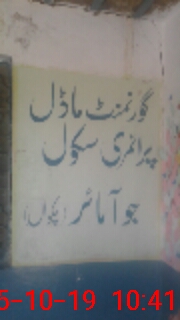 گورنمنٹ ماڈل
پرائمری سکول
جوآمائر (چکوال)
5-10-19 10:41